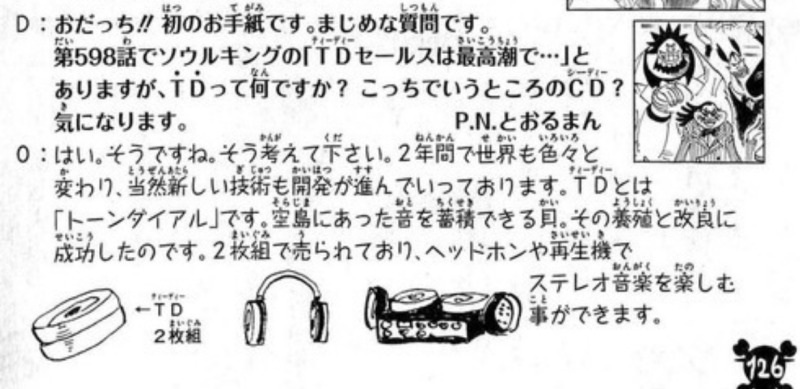 D：おだっち!! 初のお手紙です。まじめな質問です。
第598話でソウルキングの「TDセールスは最高潮で…」と
ありますが、TDって何ですか？ こっちでいうところのCD？
気になります。 P.N.とおるまん
O：はい。そうですね。そう考えて下さい。2年間で世界も色々と
変わり、当然新しい技術も開発が進んでいっております。TDとは
「トーンダイアル」です。空島にあった音を蓄積できる貝。その養殖と改良に
成功したのです。2枚組で売られており、ヘッドホンや再生機で
ステレオ音楽を楽しむ
事ができます。
←TD
2枚組
126